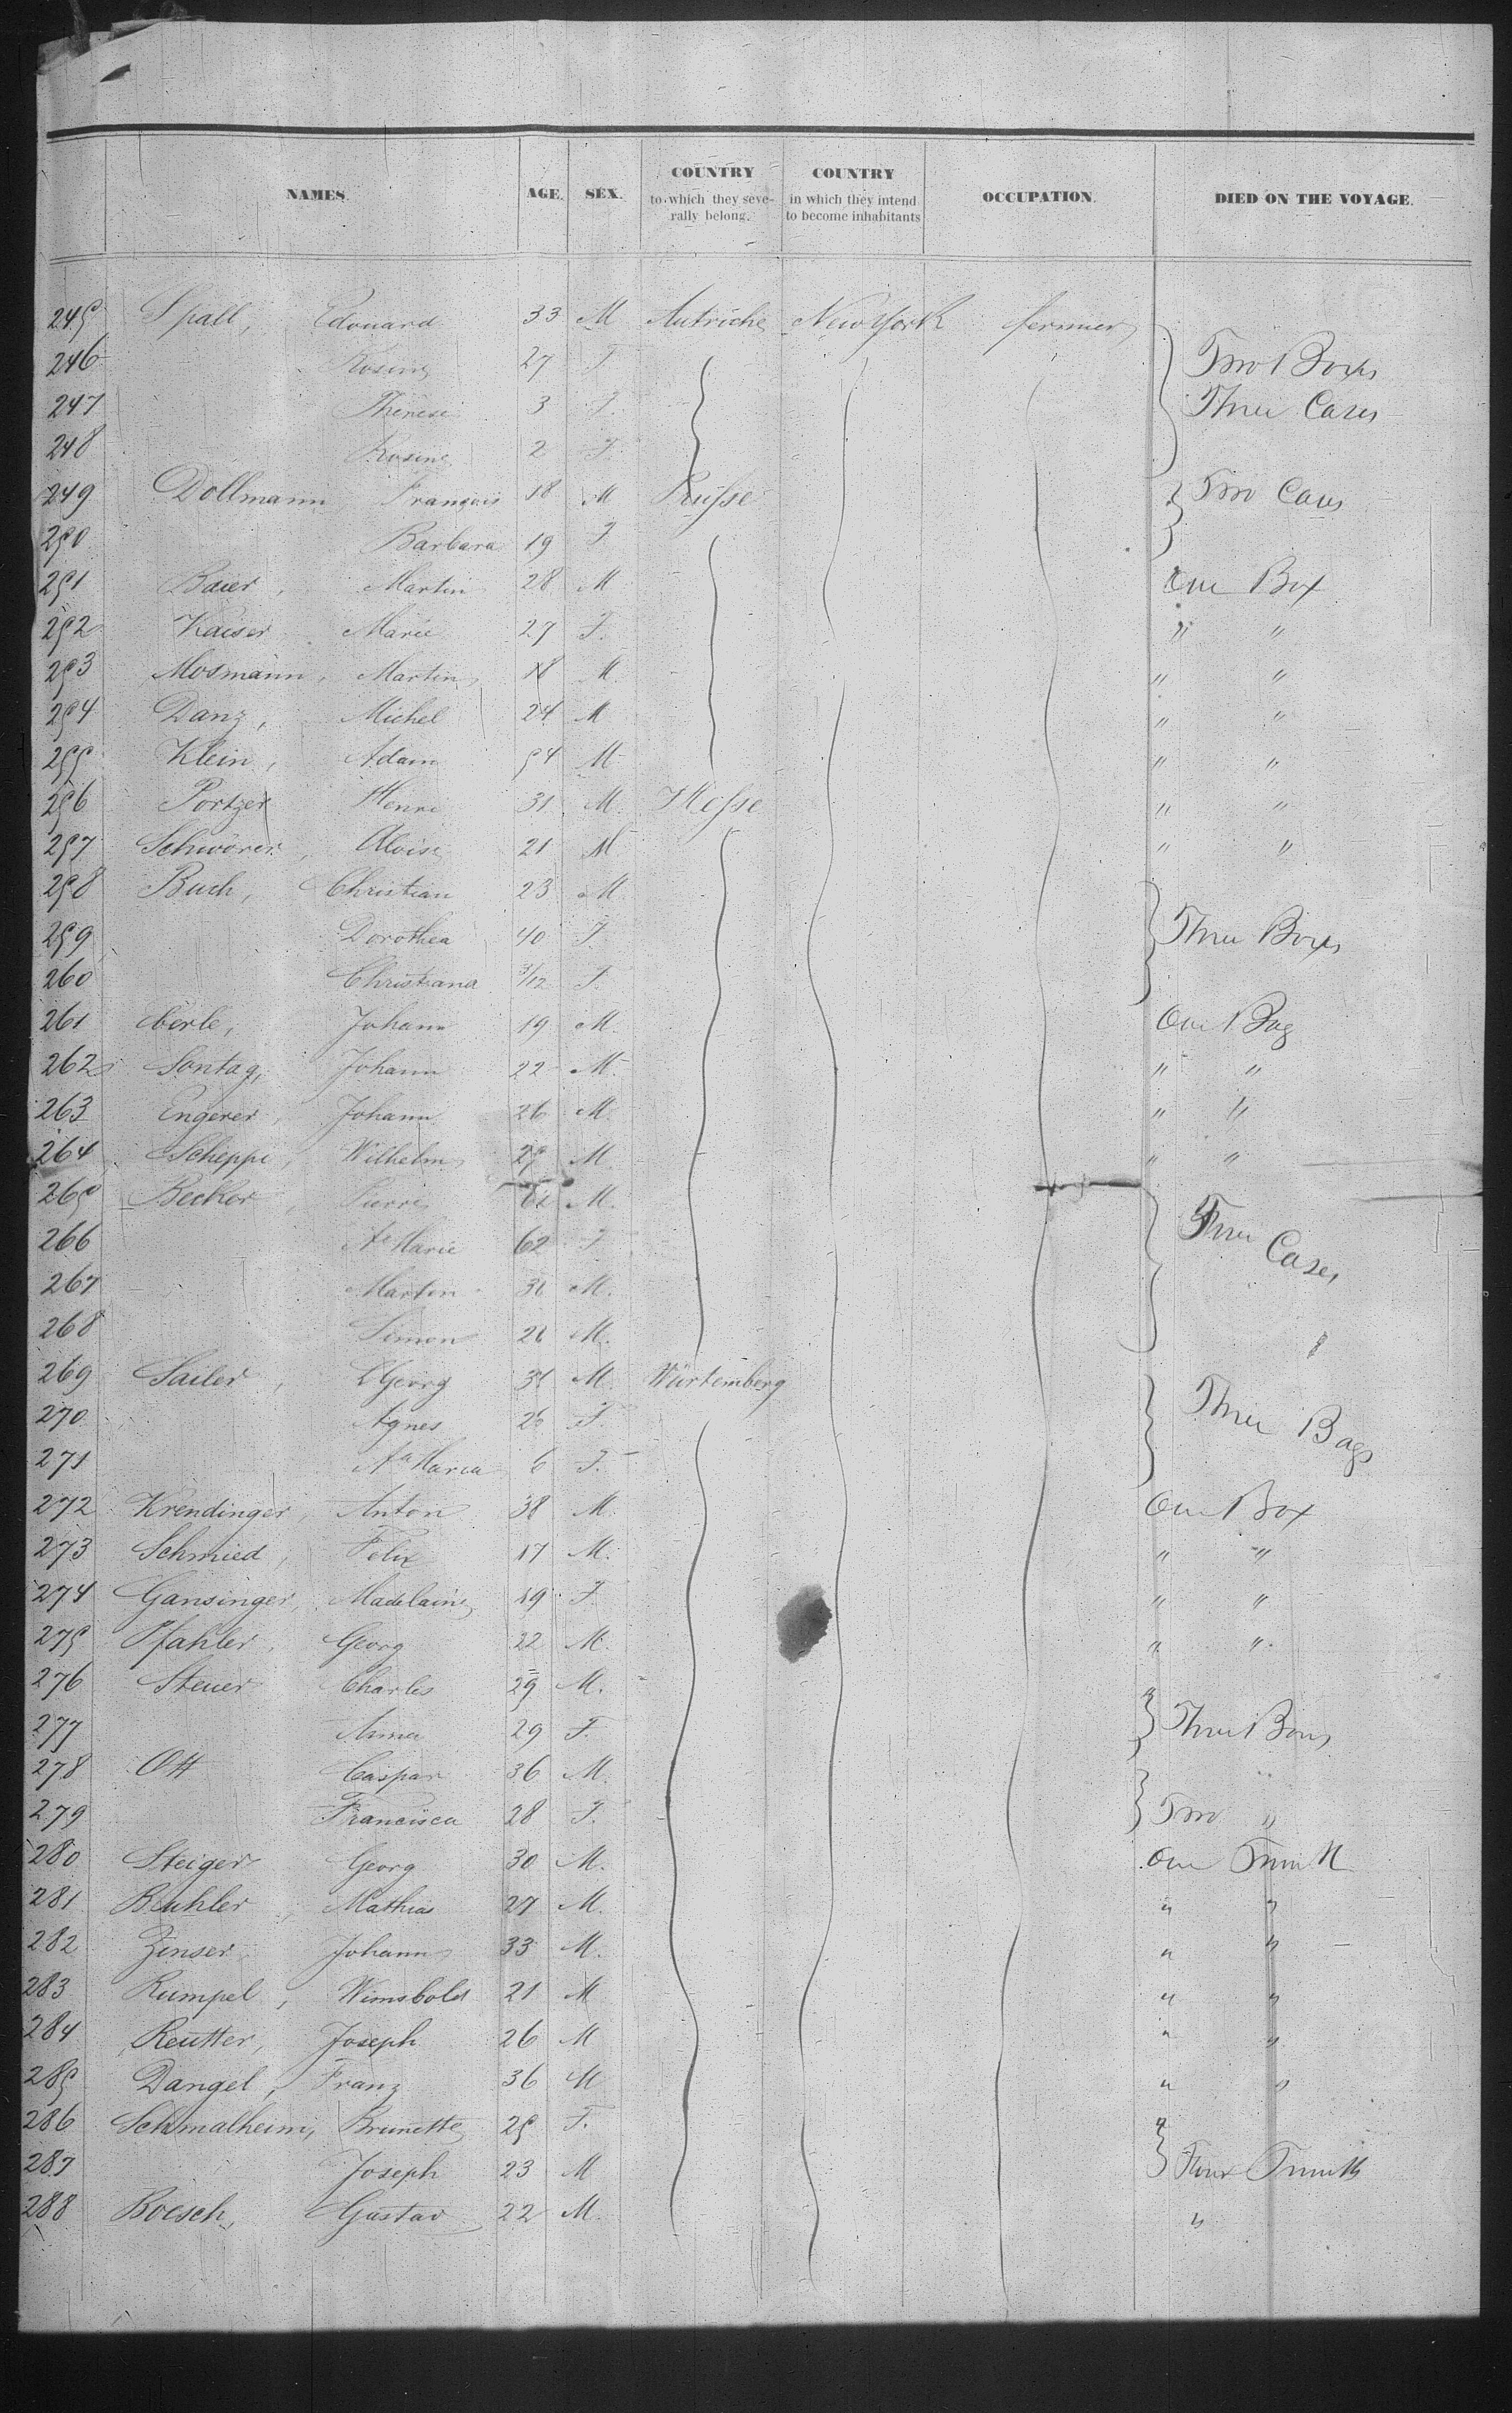 NAMES. AGE. SEX. COUNTRY to which they severally belong. COUNTRY in which they intend to become inhabitants OCCUPATION. DIED ON THE VOYAGE.
245 Spall, Edouard 33 M Autriche New York fermier
246 Rosine 27 F. Two Boxes
247 Therese 3 F. Three Cases
248 Rosine 2 F.
249 Dollmann François 18 M Prusse Two Cases
250 Barbara 19 F
251 Baier, Martin 28 M One Box
252 Kaiser Marie 27 F. " "
253 Mosmann, Martin 18 M. " "
254 Danz, Michel 24 M " "
255 Klein, Adam 54 M " "
256 Portzer Henri 31 M. Hesse " "
257 Schwörer, Aloise 21 M " "
258 Buch, Christian 23 M
259 Dorothea 40 F. Three Boxes
260 Christiana 3/12 F.
261 Eberle, Johann 19 M. One Bag
262 Sontag, Johann 22 M. " "
263 Engerer, Johann 26 M. " "
264 Scheppe, Wilhelm 25 M. " "
265 Becker, Pierre M.
266 Ae Marie 62 F Cases
267 Martin M.
268 Simon 26 M.
269 Sailer, Georg M. Würtemberg
270 Agnes 26 F. Three Bags
271 Aa Maria 6 F.
272 Krendinger, Anton 38 M. One Box
273 Schmied, Felix 17 M. " "
274 Gansinger, Madelaine 19 F. " "
275 Pfahler, Georg 22 M. " "
276 Steuer Charles 29 M.
277 Anna 29 F. Three Boxes
278 Ott Caspar 36 M.
279 Francisca 28 F. Two "
280 Steiger Georg 30 M. One Trunk
281 Buhler, Mathias 27 M. " "
282 Zinser Johann 33 M. " "
283 Rumpel, Wimsbold 21 M " "
284 Reutter, Joseph 26 M " "
285 Dangel, Franz 36 M " "
286 Schmalheim, Brunette 25 F.
287 Joseph 23 M Four Trunks
288 Boesch, Gustav 22 M. "